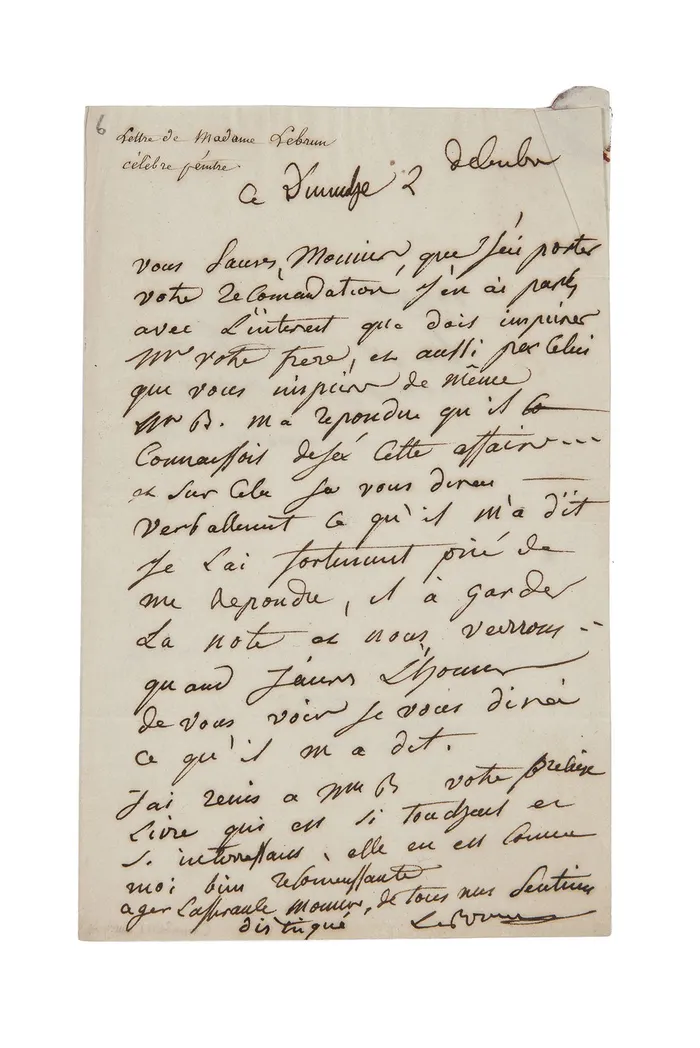 6
Lettre de Madame Lebrun
célèbre peintre.
Ce Dimanche 2
vous saurez, Monsieur, que j'ai porter
votre recomandation, j'en ai parlé
avec l'interest que dois inspirer
Mr votre frere, et aussi par celui
que vous inspirer de même
Mr B. m'a repondue qu'il
Connaissois dejéa Cette affaire
et sur Cela je vous direai
verballement ce qu'il m'a dit
je l'ai fortement prié de
me repondre, il à garder
La note et nous verrons
quand j'aurai L'honeur
de vous voir je vous direai
ce qu'il m'a dit.
J'ai remis a Mme B votre
Livre qui est si touchant et
si interressant, elle en est comme
moi bien reconnessante
Monsieur, de tous nos sentimen
distingué LeBrun